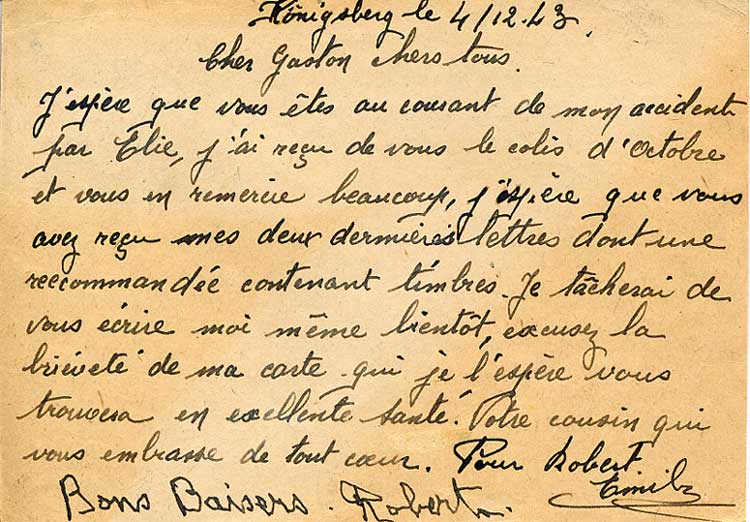 Königsberg le 4/12.43.
Cher Gaston chers tous.
J'espère que vous êtes au courant de mon accident
par Elie, j'ai reçu de vous le colis d'Octobre
et vous en remercie beaucoup, j'espère que vous
avez reçu mes deux dernières lettres dont une
reccommandée contenant timbres. Je tâcherai de
vous écrire moi même bientôt, excusez la
briéveté de ma carte qui je l'espère vous
trouvera en excellente santé. Votre cousin qui
vous embrasse de tout cœur. Pour Robert
Emile
Bons Baisers. Robert.